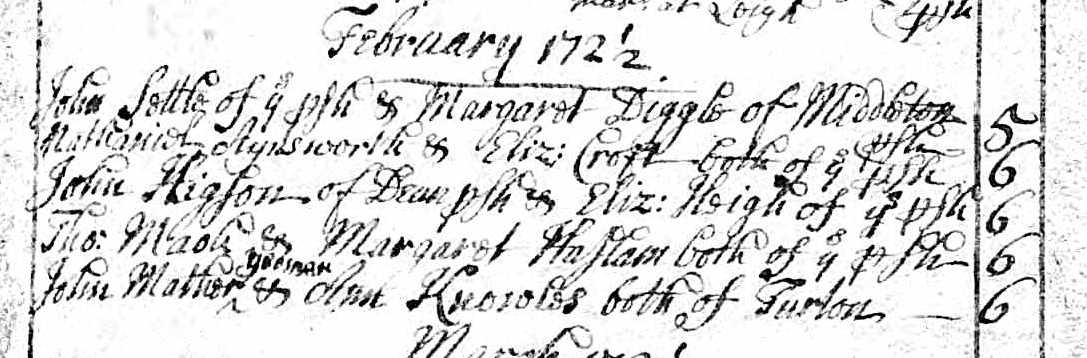 mar: at Leigh psh
February 172½.
John Settle of yᵉ psh & Margaret Diggle of Middleton psh 5
Nathaniel Aynsworth & Eliz: Croft both of yᵉ psh 6
John Higson of Dean psh & Eliz: Heigh of yᵉ psh 6
Tho: & Margaret Haslam both of yᵉ psh 6
John Mather yeoman & Ann Knowles both of Turton 6
March 172